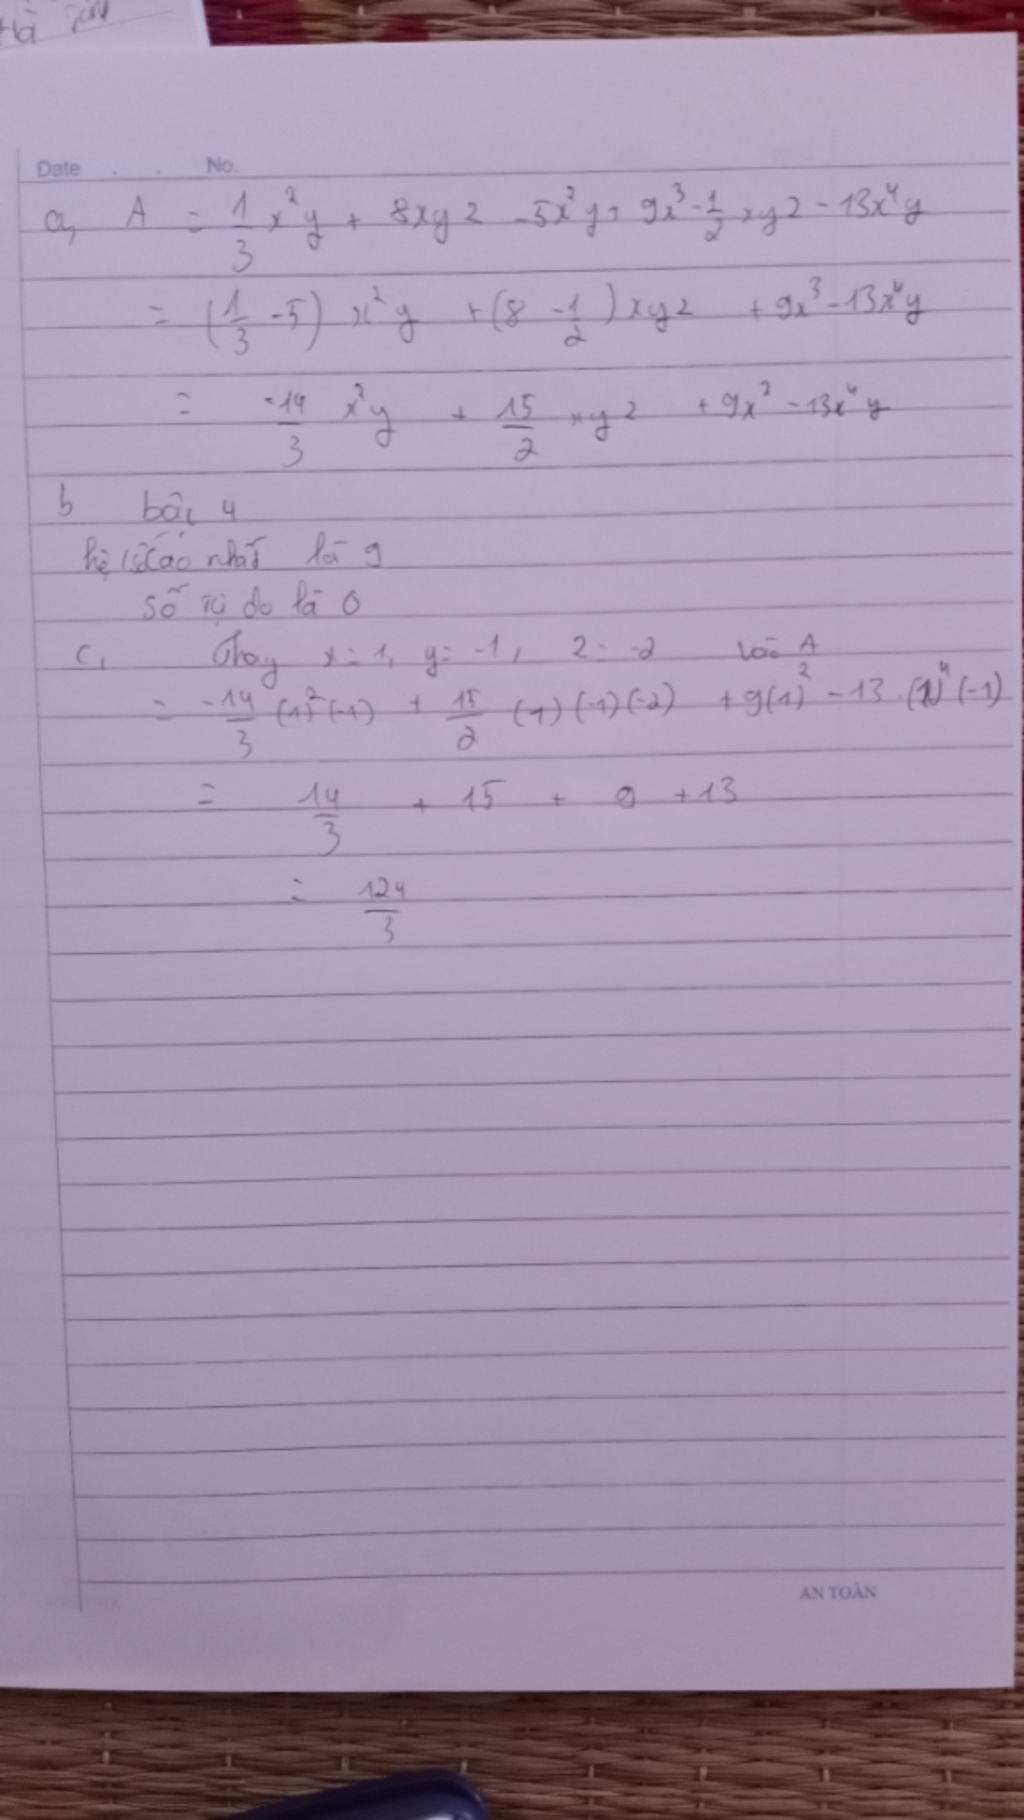 Hà
Date . . No.
a, A = 1/3 x²y + 8xyz - 5x²y + 9x³ - 1/2 xyz - 13x⁴y
= (1/3 - 5) x²y + (8 - 1/2) xyz + 9x³ - 13x⁴y
= -14/3 x²y + 15/2 xyz + 9x² - 13x⁴y
b bậc 4
hệ số cao nhất là 9
số tự do là 0
c, Thay x = 1, y = -1, z = -2 vào A
= -14/3 (1)² (-1) + 15/2 (1) (-1) (-2) + 9(1)² - 13 . (1)⁴ (-1)
= 14/3 + 15 + 9 + 13
= 124/3
AN TOÀN